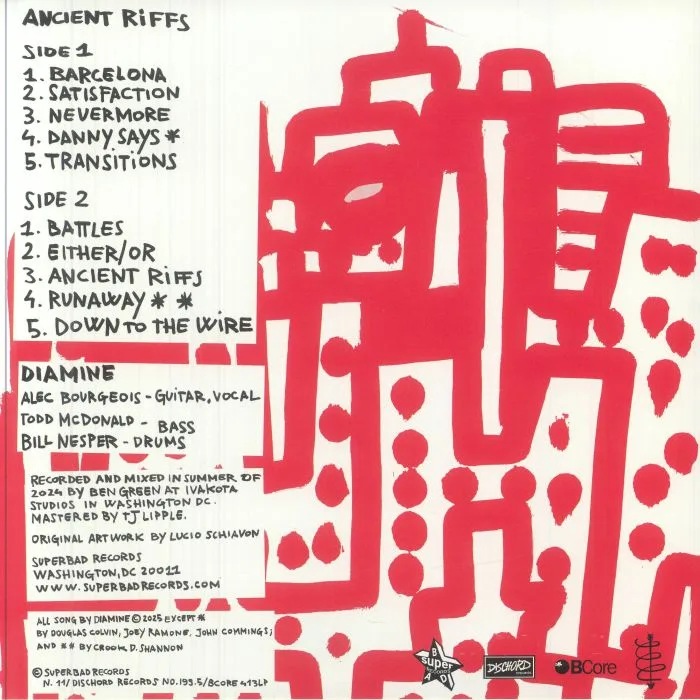 ANCIENT RiFFS
SIDE 1
1. BARCELONA
2. SATISFACTION
3. NEVERMORE
4. DANNY SAYS *
5. TRANSITIONS
SIDE 2
1. BATTLES
2. EITHER/OR
3. ANCIENT RiFFS
4. RUNAWAY * *
5. DOWN TO THE WiRE
DIAMINE
ALEC BOURGEOIS - GUITAR, VOCAL
TODD McDONALD - BASS
BILL NESPER - DRUMS
RECORDED AND MIXED IN SUMMER OF
2024 BY BEN GREEN AT IVAKOTA
STUDIOS IN WASHINGTON DC.
MASTERED BY TJ LIPPLE.
ORIGINAL ARTWORK BY LUCIO SCHIAVON
SUPERBAD RECORDS
WASHINGTON, DC 20011
WWW.SUPERBADRECORDS.COM
ALL SONG BY DIAMINE © 2025 EXCEPT *
BY DOUGLAS COLVIN, JOEY RAMONE, JOHN COMMINGS;
AND ** BY CROOK, D. SHANNON
© SUPERBAD RECORDS
N. 11/DISCHORD RECORDS NO.199.5/BCORE 413LP
super
BAD
DISCHORD
records
BCore